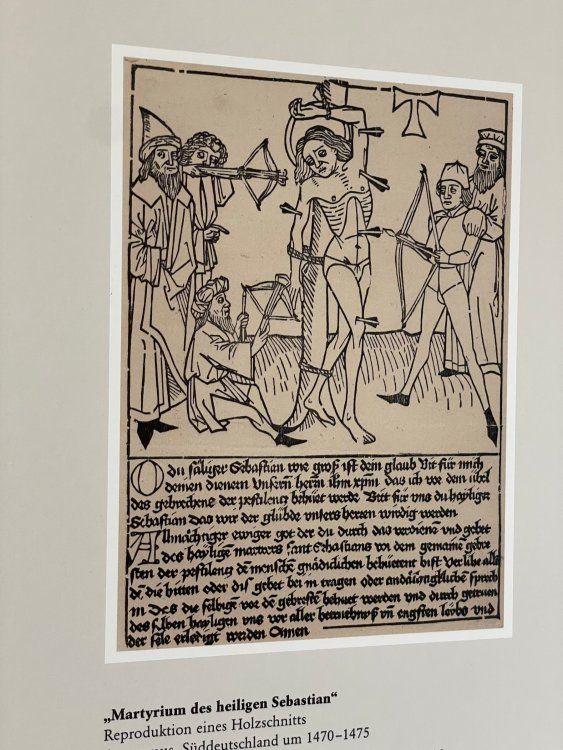 O du säliger Sebastian wie groß ist dein glaub Bit für mich
deinen dienern Unsern herrn ihm xpm das ich vor dem übel
des gebrechens der pestilentz behüet werde Bitt für uns du hayliger
Sebastian das wir der glübde unsers herren wirdig werden
Allmächtiger ewiger got der du durch das verdienen und gebet
des hayligen martrers sant Sebastians vor dem gemaine gebre
sten der pestilentz de menschē gnädiclichen behüetent bist Verlihe allē
dē die bitten oder dis gebet bei in tragen oder andächtigklichen sprech
in Des die selbige vor dē gebrestē behuet werden und durch getruen
des selben hayligen uns vor aller betruebnyß uñ engsten leybs und
der sele erlediget werden Amen
„Martyrium des heiligen Sebastian“
Reproduktion eines Holzschnitts
Süddeutschland um 1470–1475